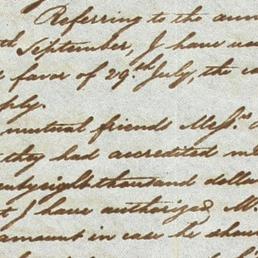 Referring to the ann
th September, I have
favor of 29th July, the
ply.
mutual friends Messrs
they had accredited m
twentyeight thousand dolla
I have authorized M.
amount in case he shou